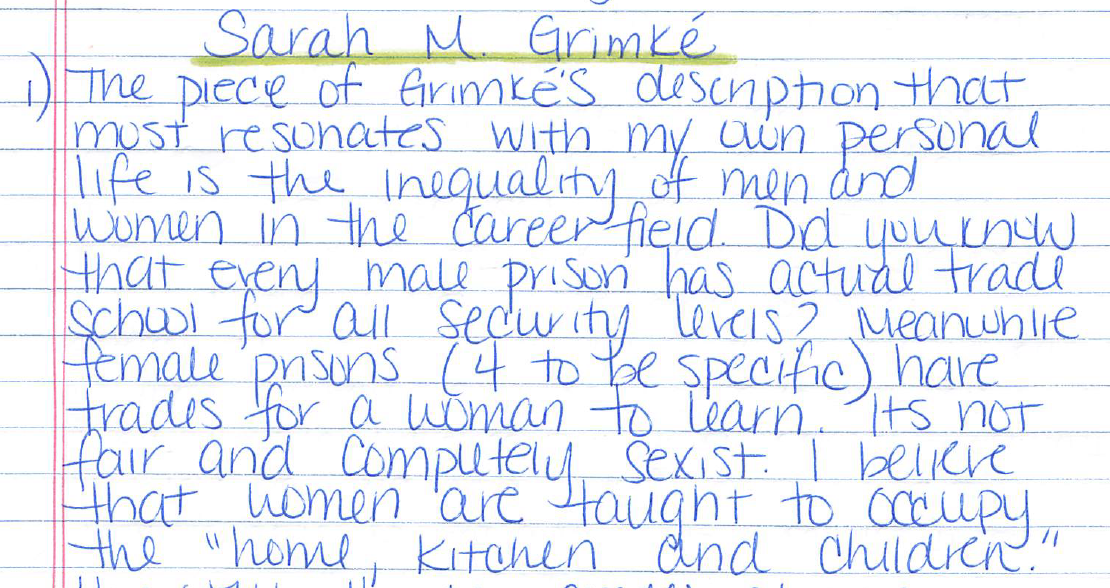 Sarah M. Grimké
1) The piece of Grimké's description that
most resonates with my own personal
life is the inequality of men and
women in the career field. Did you know
that every male prison has actual trade
school for all security levels? Meanwhile
female prisons (4 to be specific) have
trades for a woman to learn. Its not
fair and completely sexist. I believe
that women are taught to occupy
the "home, kitchen and children."